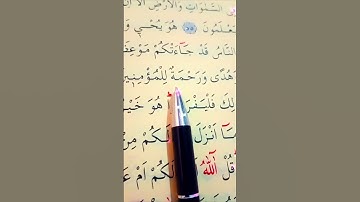 السَّمٰوَاتِ وَالْاَرْضِ اَلَٓا اِنَّ
يَعْلَمُونَ ٥٥ هُوَ يُحْيٖ وَ
النَّاسُ قَدْ جَٓاءَتْكُمْ مَوْعِظَ
هُدًى وَرَحْمَةٌ لِلْمُؤْمِنٖينَ
لِكَ فَلْيَفْرَ هُوَ خَيْ
مَٓا اَنْزَلَ لَكُمْ مِنْ
قُلْ آٰللّٰهُ لَكُمْ اَمْ عَ